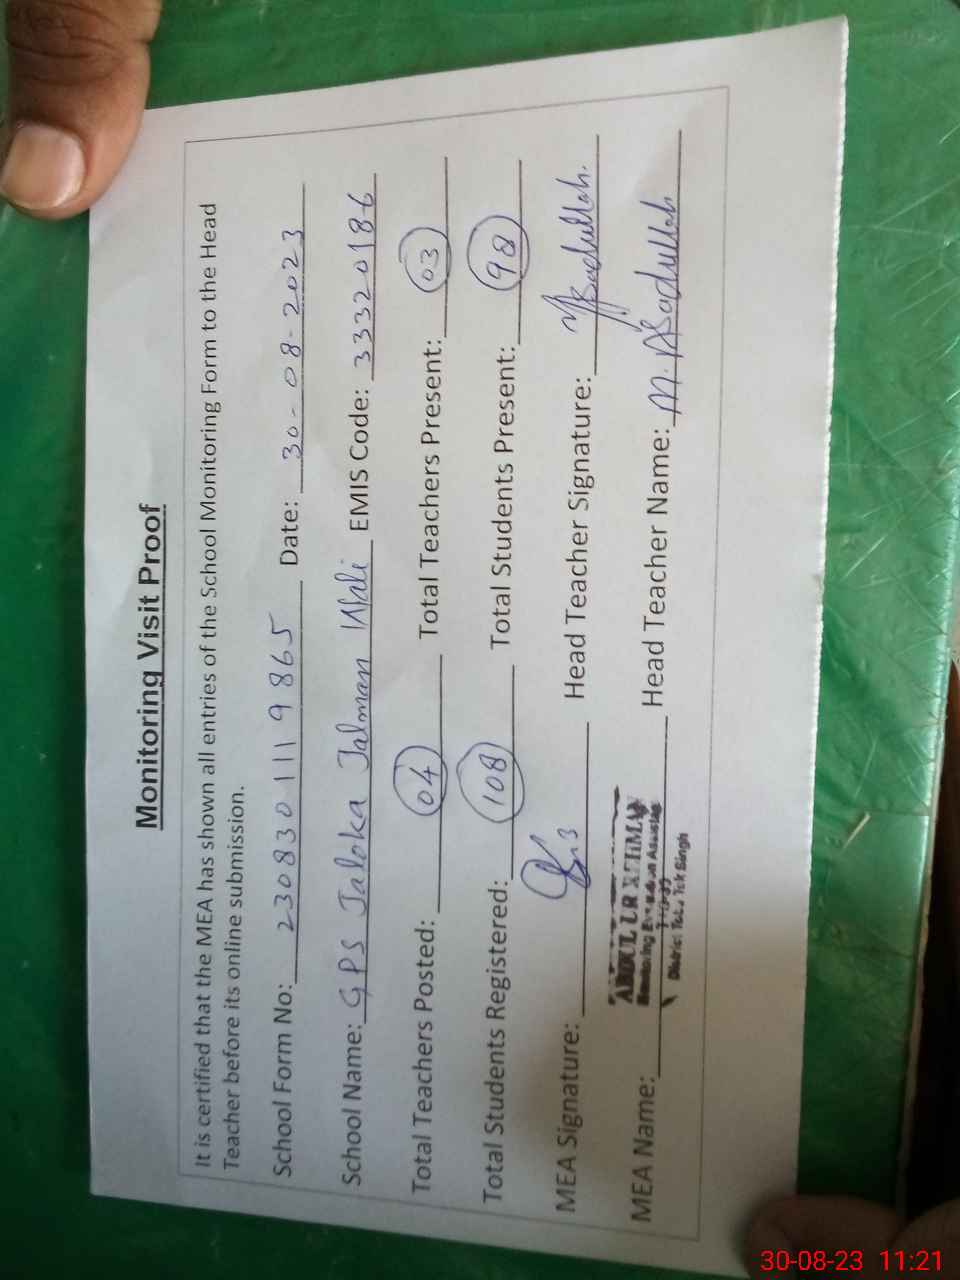 Monitoring Visit Proof
It is certified that the MEA has shown all entries of the School Monitoring Form to the Head
Teacher before its online submission.
School Form No: 230830 111 9865 Date: 30-08-2023
School Name: GPS Jaloka Jalman Wali EMIS Code: 33320186
Total Teachers Posted: 04 Total Teachers Present: 03
Total Students Registered: 108 Total Students Present: 98
MEA Signature: Head Teacher Signature: M Asadullah.
MEA Name: ABDUL UR REHMAN Head Teacher Name: M. Asadullah
Monitoring Evaluation Assistant
District Toba Tek Singh
30-08-23 11:21